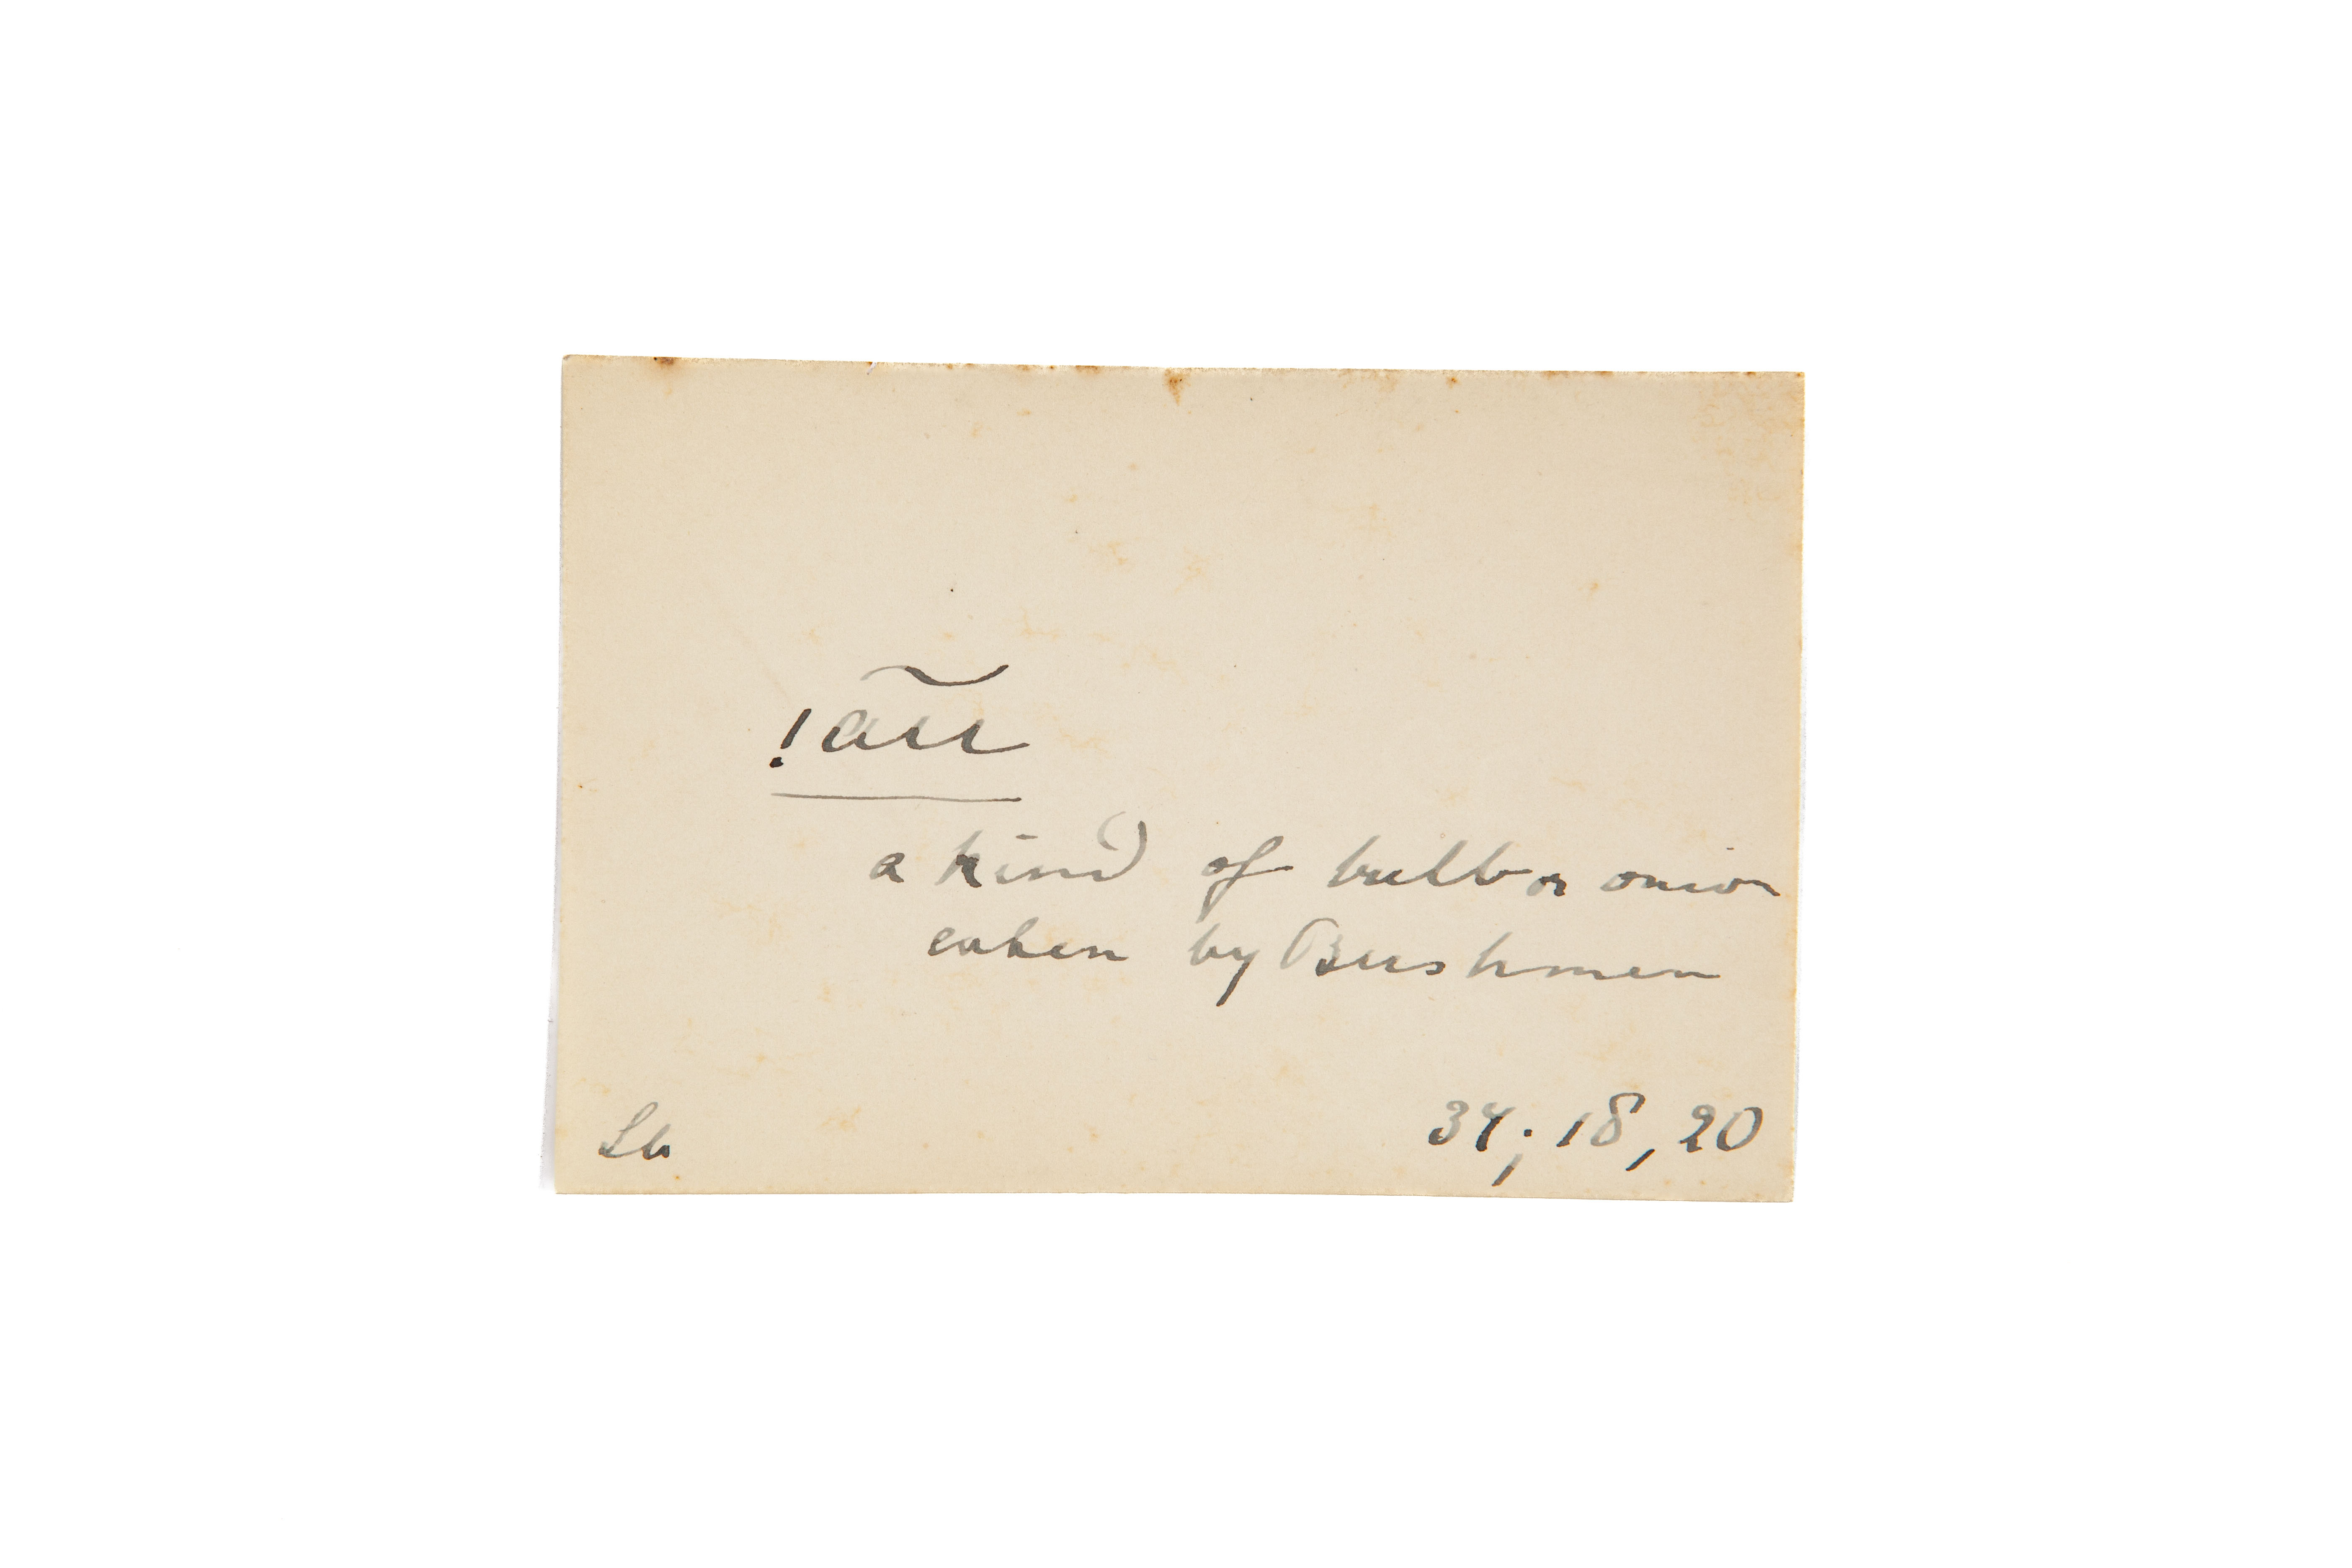 !a͠u
a kind of bulb or onion
eaten by Bushmen
Lb 34; 18, 20